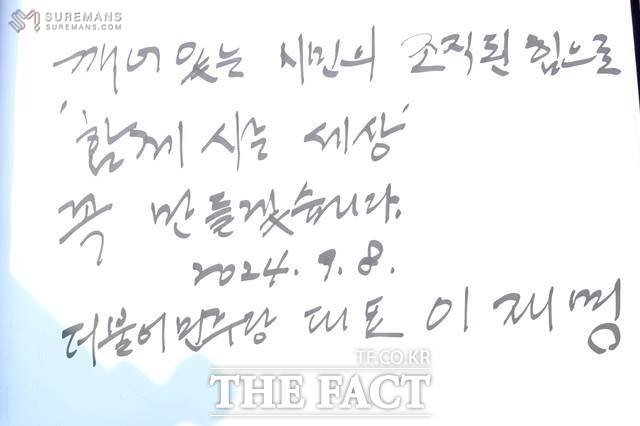 SUREMANS
SUREMANS.COM
깨어있는 시민의 조직된 힘으로
'함께 사는 세상'
꼭 만들겠습니다.
2024. 9. 8.
더불어민주당 대표 이재명
TF.CO.KR
THE FACT